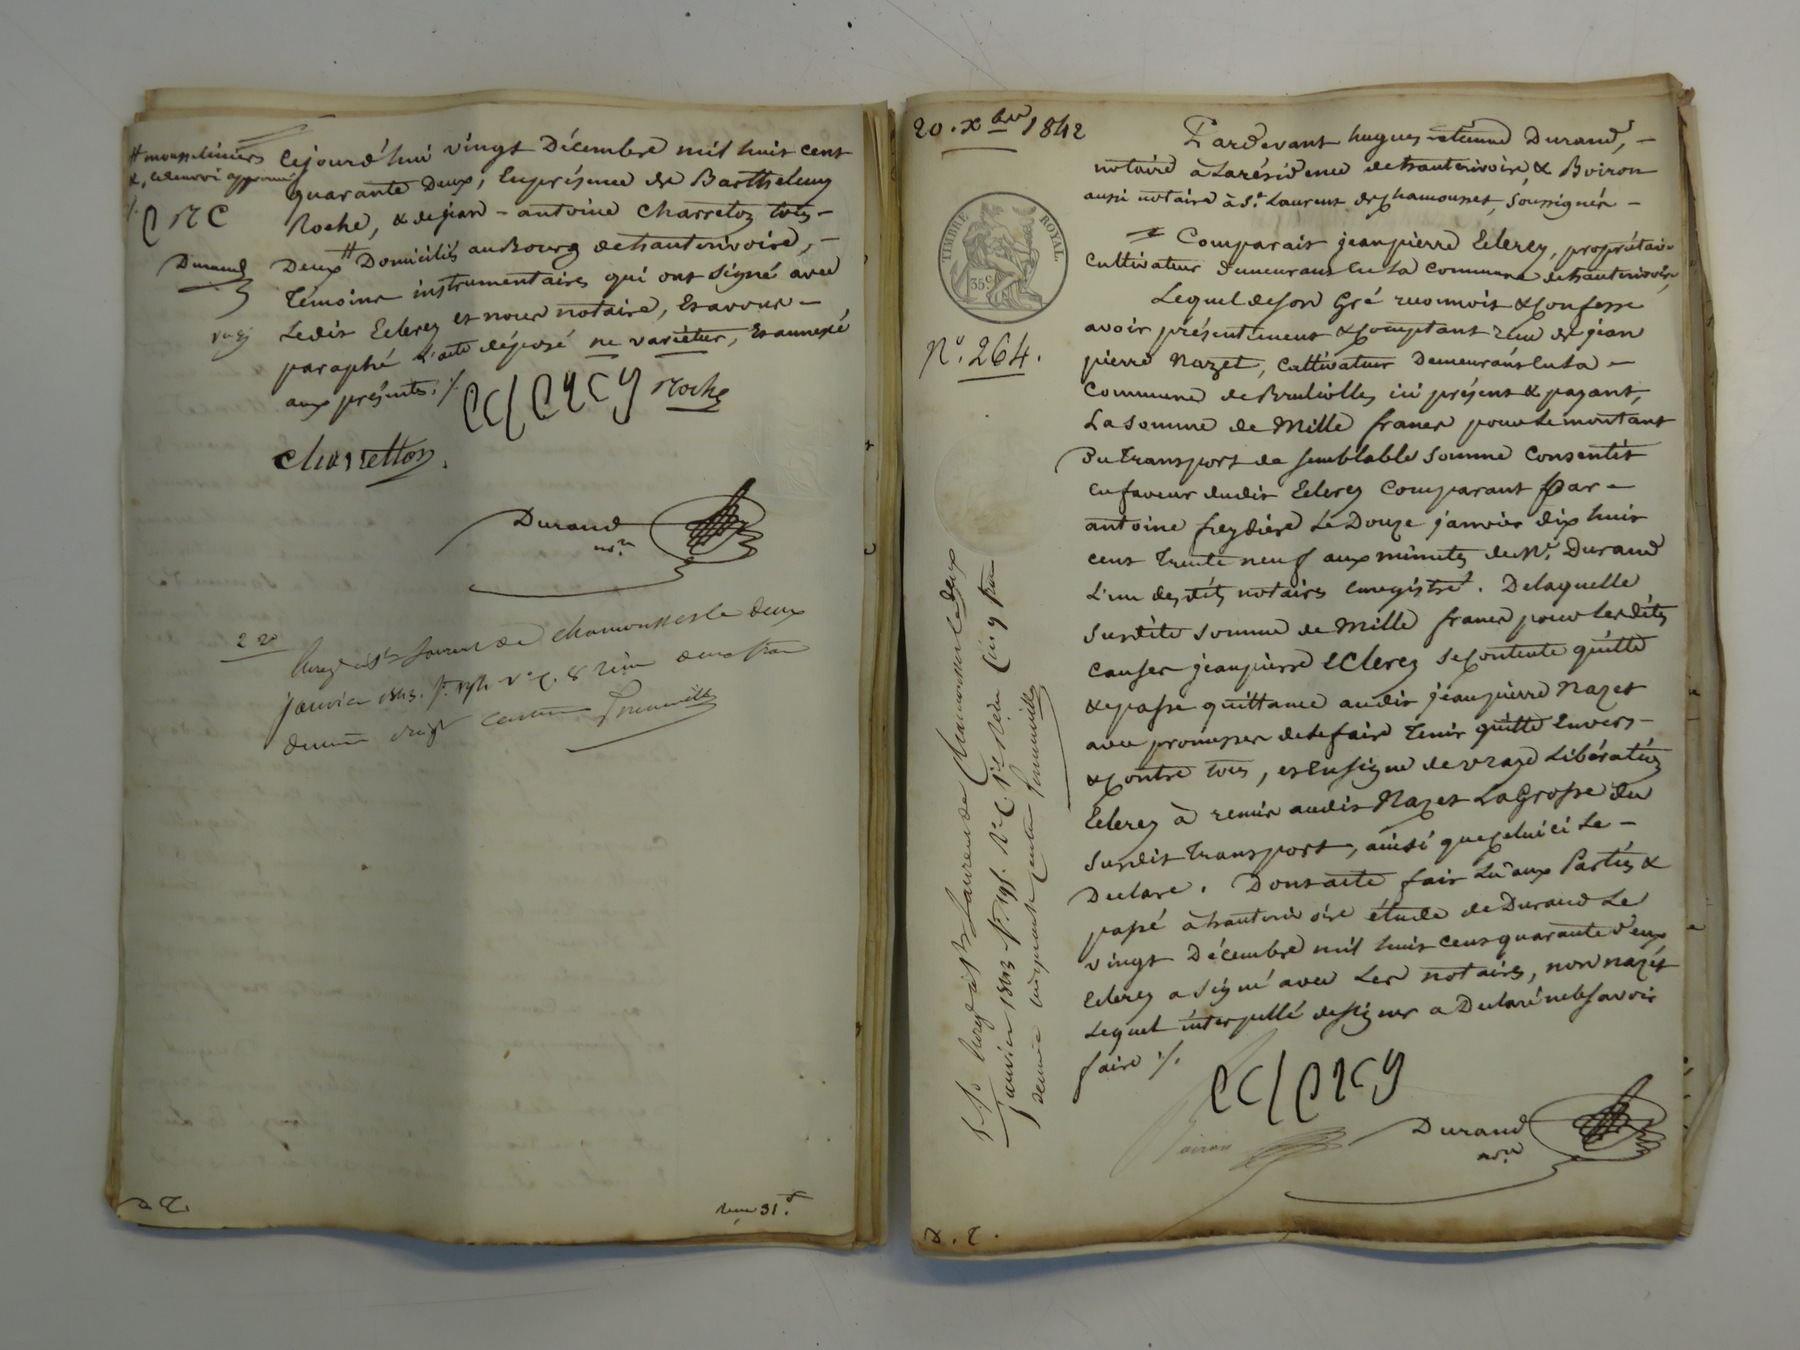 # mousseliniers
&, le renvoi approuvé
C R C
Durand
cejourd'hui vingt Décembre mil huit cent
quarante Deux, En présence de Barthelemy
Roche, & de jean-antoine Charreton tous-
Deux # Domiciliés au Bourg de hauterivoire,-
Témoins instrumentaires qui ont signé avec
Ledit Eclerey et nous notaire, Et avons-
paraphé L'acte déposé ne varietur, Et annexé
aux présentes ./.
Eclerey Roche
Charretton
Durand
nore
2 20
Enregé à St Laurent de Chamousset le deux
janvier 1843. fo
deux fran
décime vingt centimes
Reçu 31.
D. T.
20. Xbre 1842
TIMBRE ROYAL
35c
No. 264.
Pardevant hugues-étienne Durand,-
notaire à La résidence de hauterivoire, & Boiron
aussi notaire à St. Laurent de Chamousset, Soussignés-
Comparait jeanpierre Eclerey, propriétaire
Cultivateur demeurant En La Commune de hauterivoire,
Lequel de son Gré reconnoit & Confesse
avoir présentement & Comptant reçu de jean
pierre Nazet, Cultivateur Demeurant En La-
Commune de Brulioles, ici présent & payant,
La Somme de Mille francs pour Le montant
Du Transport de semblable Somme Consentit
En faveur dudit Eclerey Comparant par-
antoine freydière Le Douze janvier dix huit
cent Trente neuf aux minutes de Me. Durand
L'un desdits notaires Enregistré. De laquelle
Susdite Somme de Mille francs pour Lesdites
Causes jeanpierre Eclerey se Contente quitte
& passe quittance audit jeanpierre Nazet
avec promesses de Le faire Tenir quitte Envers-
& Contre tous, et En signe de vraye Libération
Eclerey à remis audit Nazet La Grosse du
Susdit Transport, ainsi que Celui ci Le-
Declare. Dont acte fait Lu aux Parties &
passé à hauterivoire étude de Durand Le
vingt Décembre mil huit cent quarante deux
Eclerey a signé avec Les notaires, non Nazet
Lequel interpellé de signer a Declaré ne le savoir
faire ./.
Eclerey
Boiron
Durand
nore
5.50 Enregé à St Laurent de Chamousset le deux
janvier 1843 fo. Cinq fran
décime cinquante Centimes
D. T.